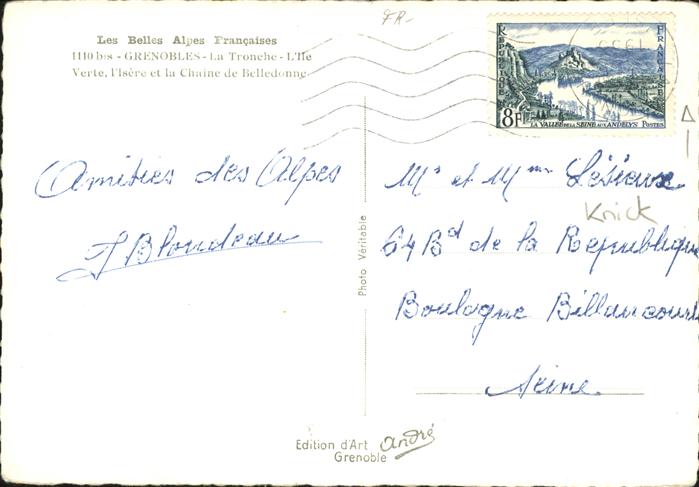 FR-
Les Belles Alpes Françaises
1110 bis - GRENOBLES - La Tronche - L'Ile
Verte, l'Isère et la Chaine de Belledonne
REPUBLIQUE FRANÇAISE
8F
LA VALLEE DE LA SEINE AUX ANDELYS POSTES
Amitiés des Alpes
J Blondeau
Photo Véritable
Mr et Mme Lésieux
Knick
64 Bd de la République
Boulogne Billancourt
Seine.
Edition d'Art André
Grenoble